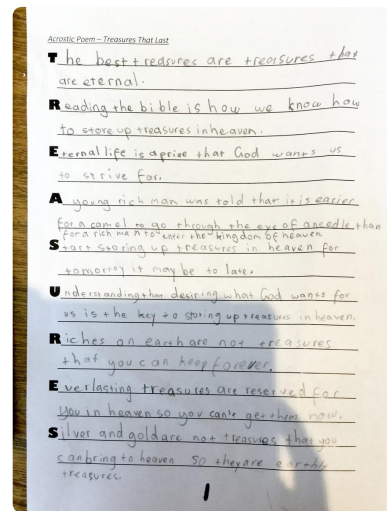 Acrostic Poem – Treasures That Last
The best treasures are treasures that
are eternal.
Reading the bible is how we know how
to store up treasures in heaven.
Eternal life is a prize that God wants us
to strive for.
A young rich man was told that it is easier
for a camel to go through the eye of a needle than
for a rich man to enter the kingdom of heaven
Start storing up treasures in heaven for
tomorroy it may be to late.
Understanding that desiring what God wants for
us is the key to storing up treasures in heaven.
Riches on earth are not treasures
that you can keep forever.
Everlasting treasures are reserved for
you in heaven so you can't get them now.
Silver and gold are not treasures that you
can bring to heaven so they are earthly
treasures.